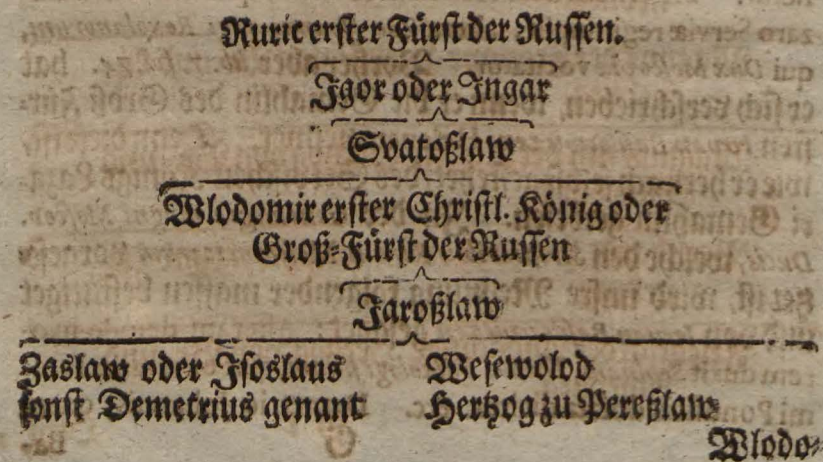 Ruric erster Fürst der Russen.
Igor oder Ingar
Svatoßlaw
Wlodomir erster Christl. König oder
Groß-Fürst der Russen
Jaroßlaw
Zaslaw oder Isoslaus Wesewolod
sonst Demetrius genant Hertzog zu Pereßlaw
Wlodo-